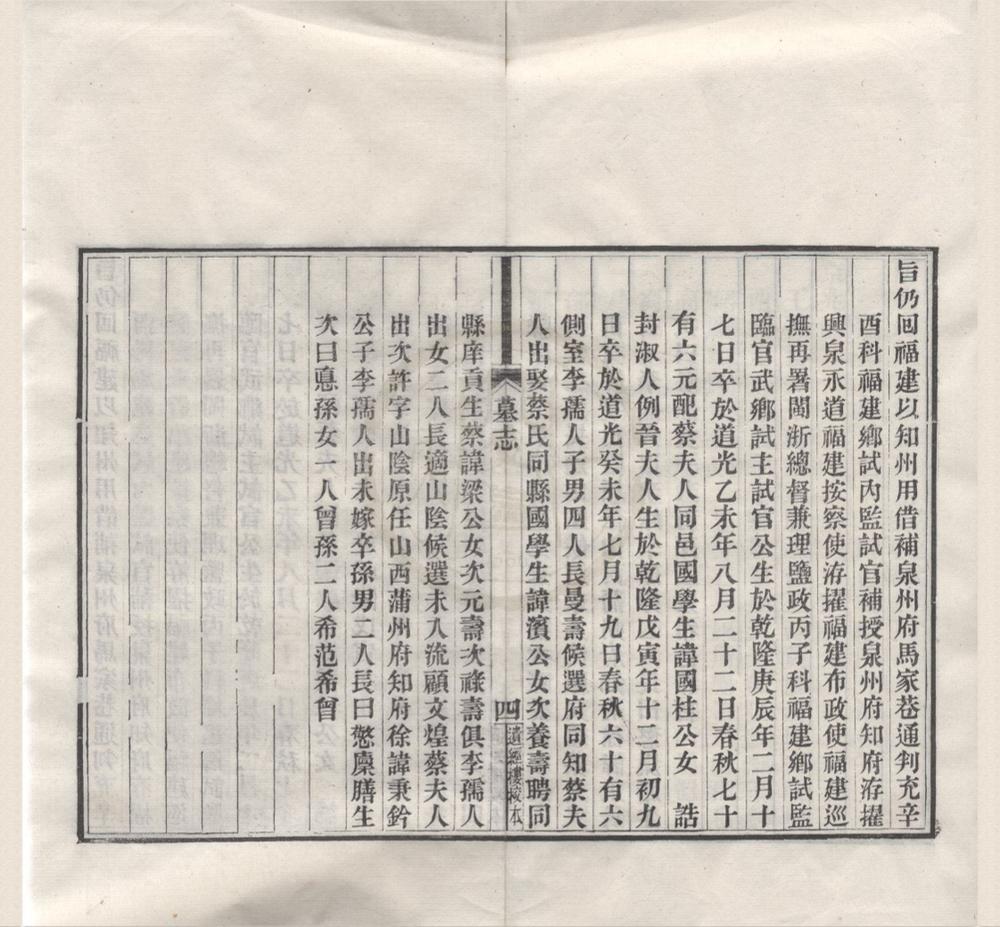 旨仍回福建以知州用借補泉州府馬家巷通判充辛
酉科福建鄉試內監試官補授泉州府知府洊擢
興泉永道福建按察使洊擢福建布政使福建巡
撫再署閩浙總督兼理鹽政丙子科福建鄉試監
臨官武鄉試主試官公生於乾隆庚辰年二月十
七日卒於道光乙未年八月二十二日春秋七十
有六元配蔡夫人同邑國學生諱國柱公女　誥
封淑人例晉夫人生於乾隆戊寅年十二月初九
日卒於道光癸未年七月十九日春秋六十有六
側室李孺人子男四人長曼壽候選府同知蔡夫
人出娶蔡氏同縣國學生諱濱公女次養壽聘同
墓志　四　遺經樓校本
縣庠貢生蔡諱梁公女次元壽次祿壽俱李孺人
出女二人長適山陰候選未入流顧文煌蔡夫人
出次許字山陰原任山西蒲州府知府徐諱秉鈐
公子李孺人出未嫁卒孫男二人長曰慜廩膳生
次曰憙孫女一人曾孫二人希范希曾